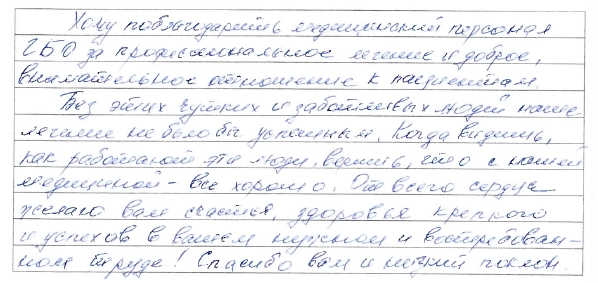 Хочу поблагодарить медицинский персонал
ГБО за профессиональное лечение и доброе,
внимательное отношение к пациентам.
Без этих чутких и заботливых людей наше
лечение не было бы успешным. Когда видишь,
как работают эти люди, веришь, что с нашей
медициной - все хорошо. От всего сердца
желаю вам счастья, здоровья крепкого
и успехов в вашем нужном и востребован-
ном труде! Спасибо вам и низкий поклон.